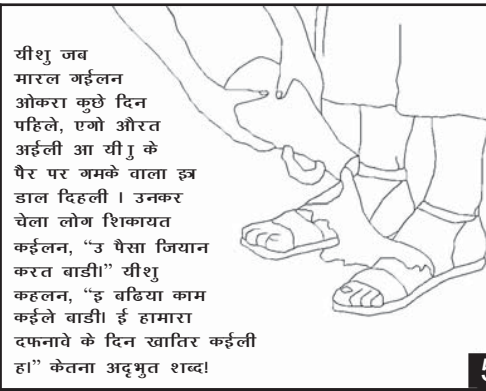 यीशु जब
मारल गईलन
ओकरा कुछे दिन
पहिले, एगो औरत
अईली आ यी ु के
पैर पर गमके वाला इत्र
डाल दिहली । उनकर
चेला लोग शिकायत
कईलन, “उ पैसा जियान
करत बाडी।” यीशु
कहलन, “इ बढिया काम
कईले बाडी। ई हामारा
दफनावे के दिन खातिर कईली
ह।” केतना अदृभुत शव्द!
5